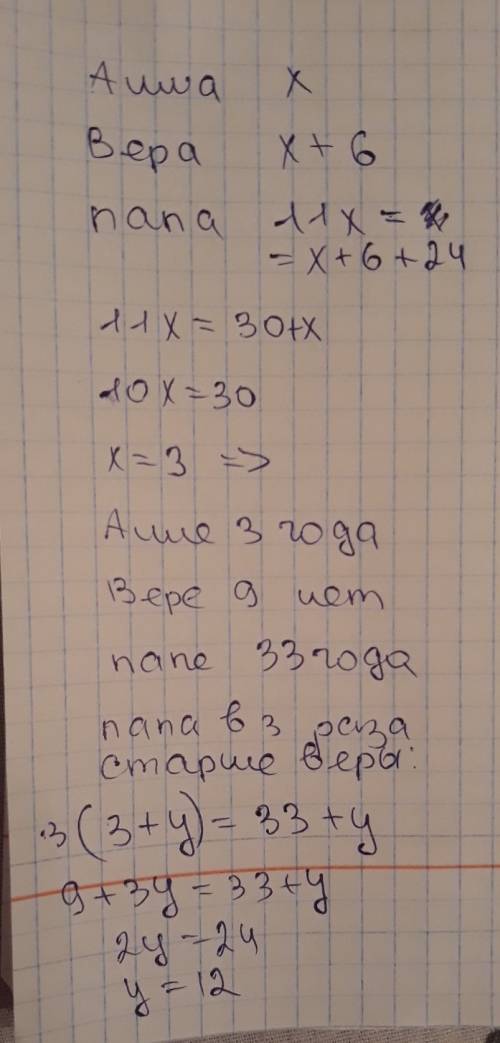 Алиса х
Вера х + 6
папа 11х =
= х + 6 + 24
11х = 30+х
10х = 30
х = 3 =>
Алисе 3 года
Вере 9 лет
папе 33 года
папа в 3 раза
старше веры:
3(3+y) = 33+y
9+3y = 33+y
2y = 24
y = 12